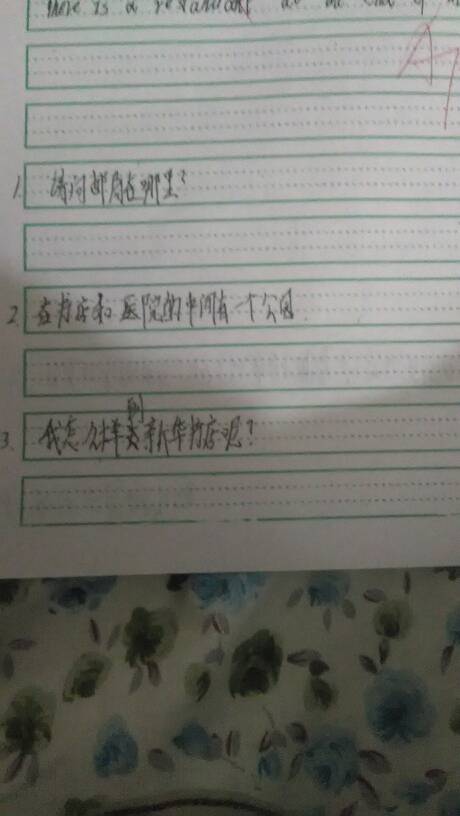 there is a restaurant at the end of
A+
1. 请问邮局在哪里?
2. 在书店和医院的中间有一个公园.
到
3. 我怎么样去新华书店呢?